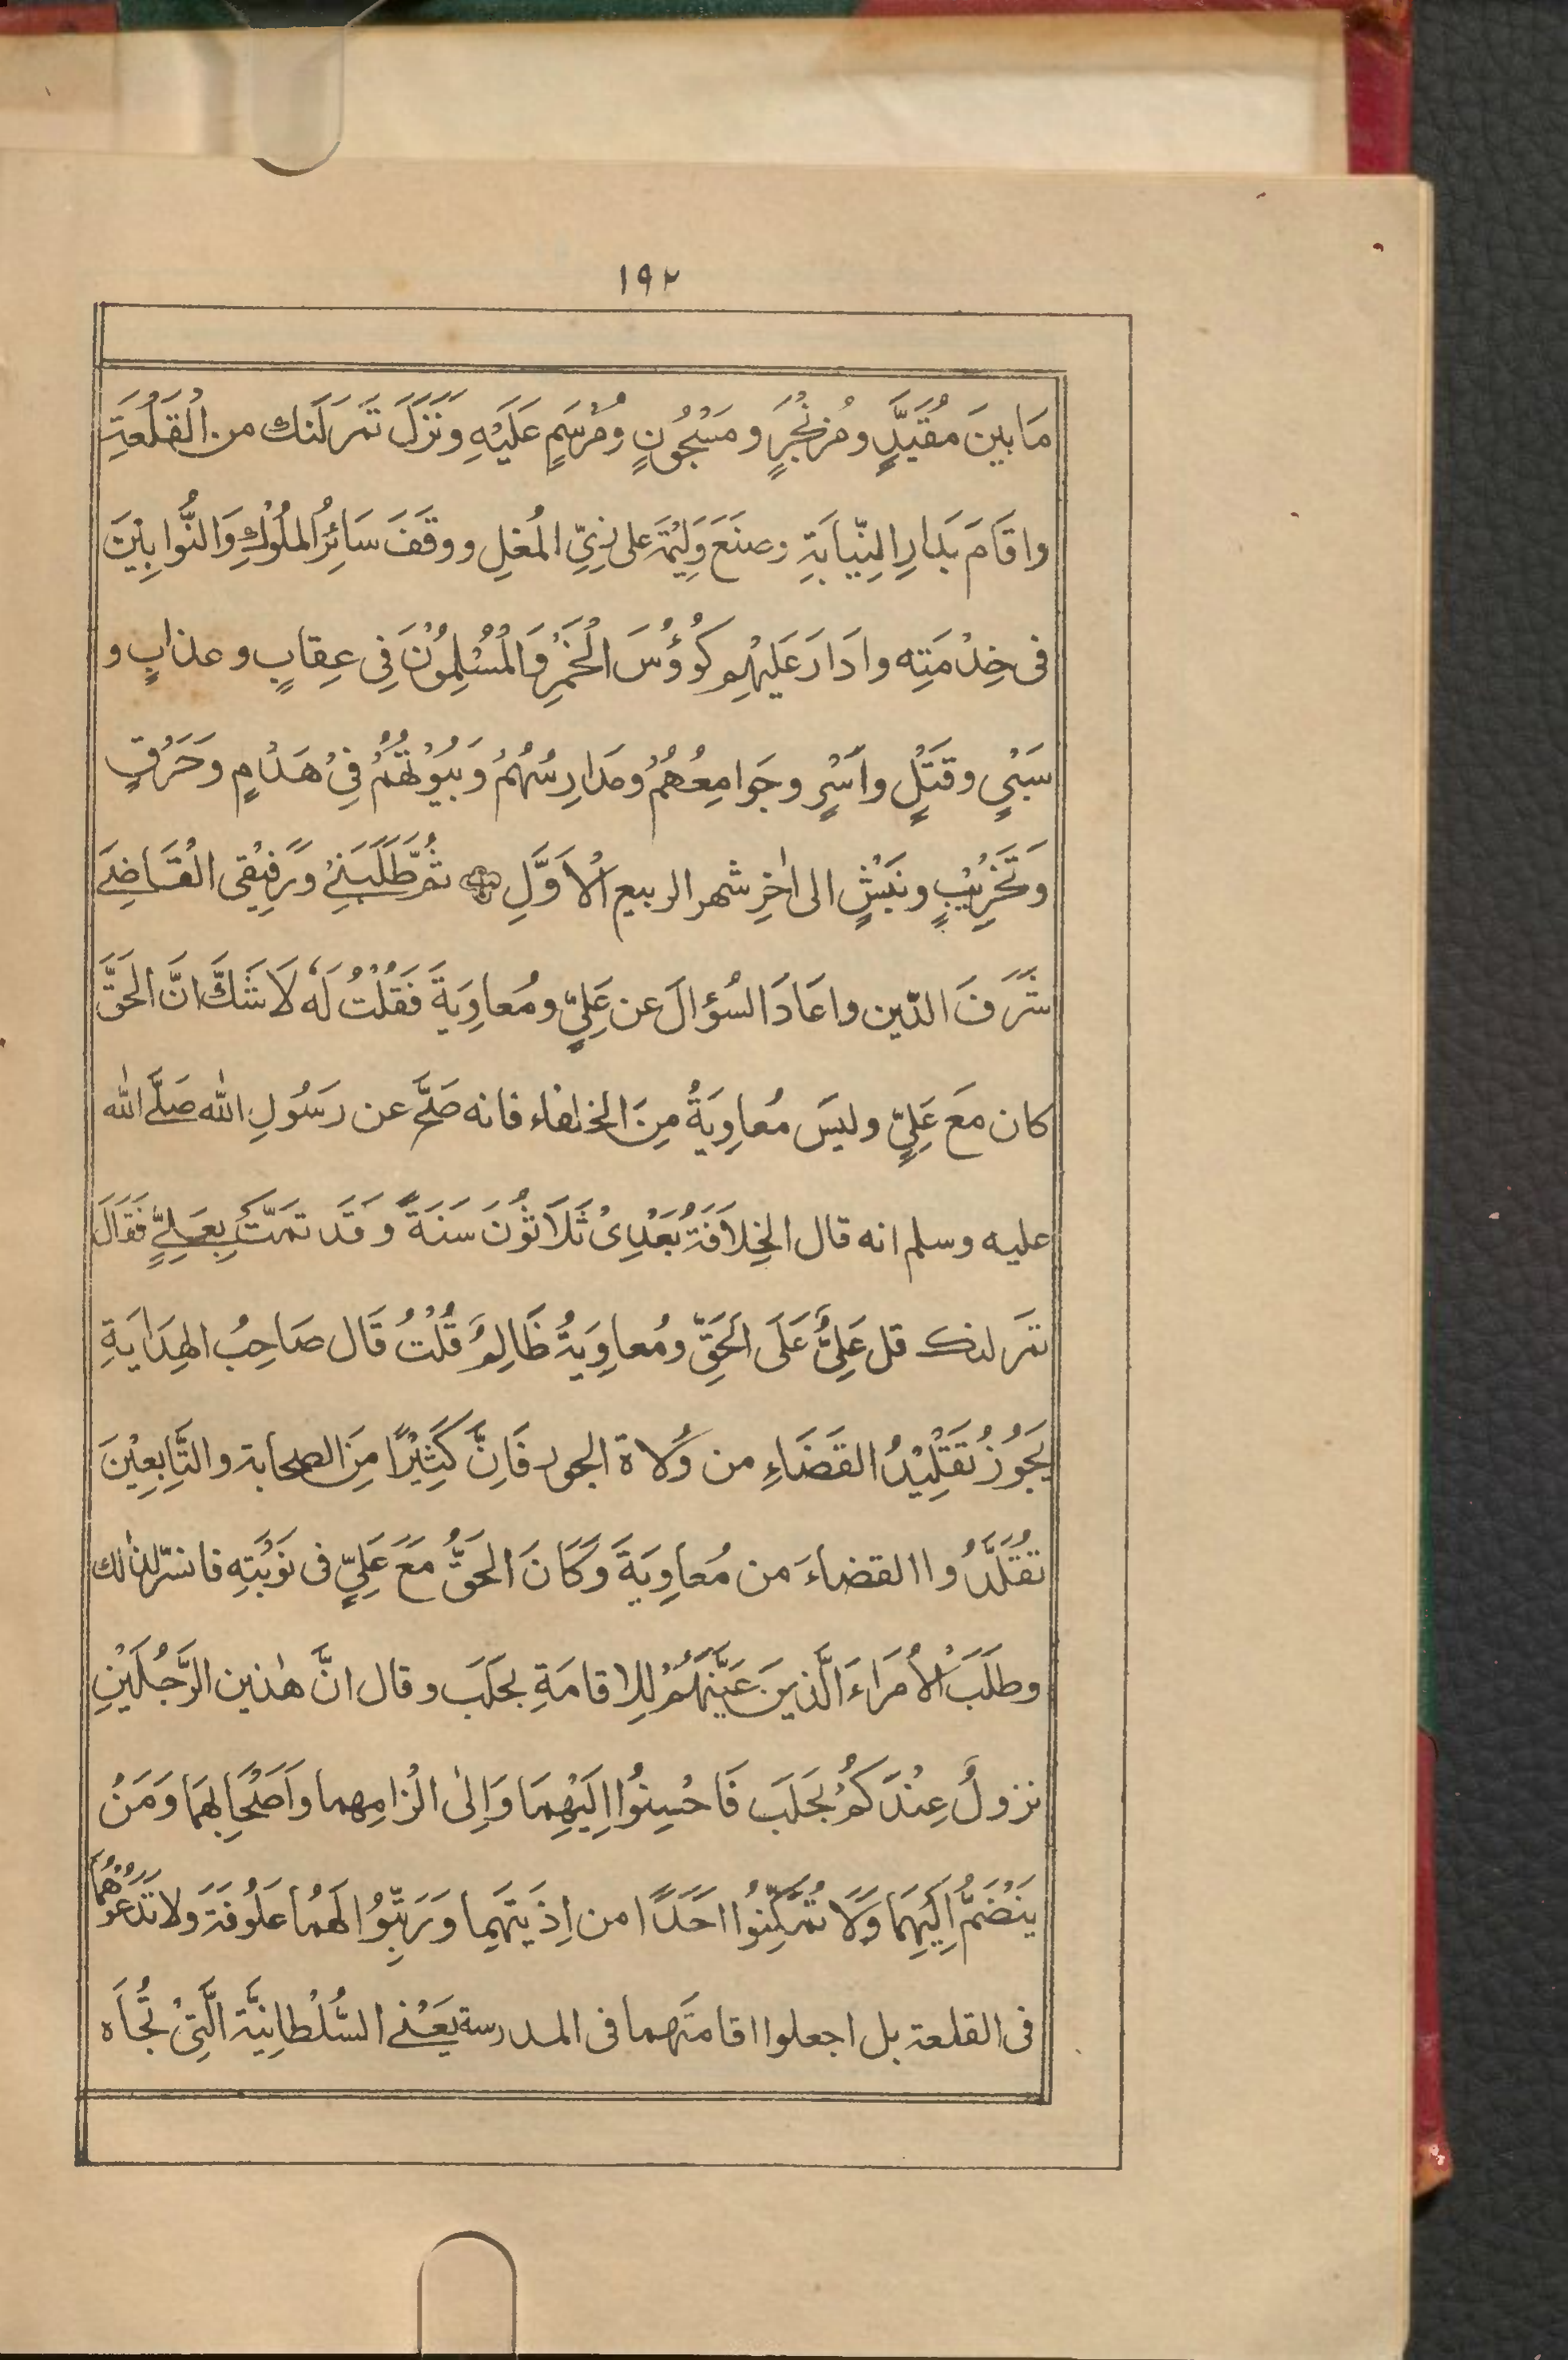 ١٩٢
مَا بينَ مُقَيَّدٍ ومُزنْجَرٍ و مَسْجُونٍ ومُرْسَمٍ عَلَيْهِ وَنَزَلَ تَمَرلَنك من القَلْعَةِ
واقَامَ بَدارِ النِّيابَةِ وصنَعَ وَلِيْمَةً على زِيِّ المُغلِ ووقَفَ سَائِرُ المُلُوْكِ وَالنُّوابِيْنَ
فى خِدْمَتِه وادَارَ عَلَيْهِم كُوُؤسَ الْخَمْرِ وَالْمُسْلِمُوْنَ فِى عِقابٍ و عذابٍ و
سَبْيٍ و قَتْلٍ واَسْرٍ وجَوامِعُهُمْ ومَدارِسُهُمْ وَبيُوْتُهُمْ فِىْ هَدْمٍ وَحَرْقٍ
وَتَخْرِيْبٍ و نَبْشٍ الى اٰخِرِ شهر الربيع الْاَوَّلِ ثُمَّ طَلَبَنِىْ وَرَفِيْقى الْقَاضِىَ
شَرَفَ الدّين واعَادَ السُؤالَ عن عَلِيٍّ ومُعاوِيَةَ فَقُلْتُ لَهٗ لَا شَكَّ انَّ الحَقَّ
كان مَعَ عَلِيٍّ وليسَ مُعاوِيَةُ مِنَ الخلفاء فانه صَحَّ عن رَسُولِ اللّٰه صَلَّى اللّٰه
عليه وسلم انه قال الخِلَافَةُ بَعْدِىْ ثَلَاثُونَ سَنَةً وَقَد تَمَّتْ بِعَلِيٍّ فَقَالَ
تمَر لنك قل عَلِيٌّ عَلَى الحَقِّ ومُعاوِيَةُ ظَالِمٌ قُلْتُ قَال صَاحِبُ الهِدَايَةِ
يَجُوزُ تَقْلِيْدُ القَضَاءِ من وُلاة الجور فَاِنَّ كَثِيْرًا مِنَ الصحابة والتَّابِعِيْنَ
تَقَلَّدُوا القضاءَ من مُعاوِيَةَ وَكَانَ الحَقُّ مَعَ عَلِيٍّ فى نَوْبَتِه فانسرّ لذٰلك
وطَلَبَ الْاُمَرَاءَ الَّذينَ عَيَّنَهُمْ لِلاقامَةِ بحَلَبَ وقال انَّ هٰذين الرَّجُلَيْنِ
نزولٌ عِنْدَكُمْ بحَلَبَ فَاحْسِنُوا اِلَيْهِمَا وَاِلىٰ الْزامِهما وَاَصْحَابِهِمَا وَمَنْ
يَنْضَمُّ اِلَيْهِمَا وَلَا تُمَكِّنُوا احَدًا من اِذيتهَما وَرَتِّبُوْا لَهُمَا عَلُوفَةً ولا تَدَعُوْهُمَا
فى القلعة بل اجعلوا اقامتَهما فى المدرسة يَعْنِى السُّلْطانِيَّةَ الَّتِىْ تُجَاه